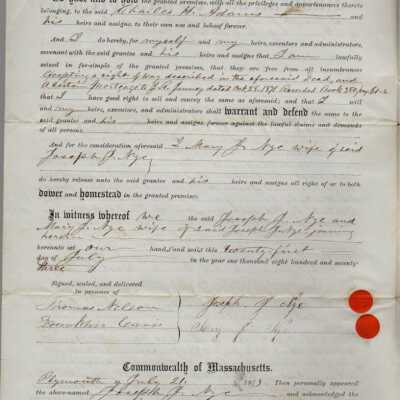 To have and to hold the granted premises, with all the privileges and appurtenances thereto
belonging, to the said Charles H. Adams and
his heirs and assigns, to their own use and behoof forever.
And I do hereby, for myself and my heirs, executors and administrators,
covenant with the said grantee and his heirs and assigns that I am lawfully
seized in fee-simple of the granted premises, that they are free from all incumbrances
Excepting a right of way described in the aforesaid deed, and
a certain Mortgage to dated Oct 25 1871 Recorded Book
that I have good right to sell and convey the same as aforesaid; and that I will
and my heirs, executors, and administrators shall warrant and defend the same to the
said grantee and his heirs and assigns forever against the lawful claims and demands
of all persons.
And for the consideration aforesaid I Mary J. Nye wife of said
Joseph J. Nye
do hereby release unto the said grantee and his heirs and assigns all right of or to both
dower and homestead in the granted premises.
In witness whereof we the said Joseph J. Nye and
Mary J. Nye wife of said Joseph J. Nye joining
herein
hereunto set our hands and seals this twenty first
day of July in the year one thousand eight hundred and seventy-
three
Signed, sealed, and delivered
in presence of
Thomas Nelson
Joseph J. Nye
Mary J. Nye
Commonwealth of Massachusetts.
Plymouth July 21 1873. Then personally appeared
the above-named Joseph J. Nye and acknowledged the